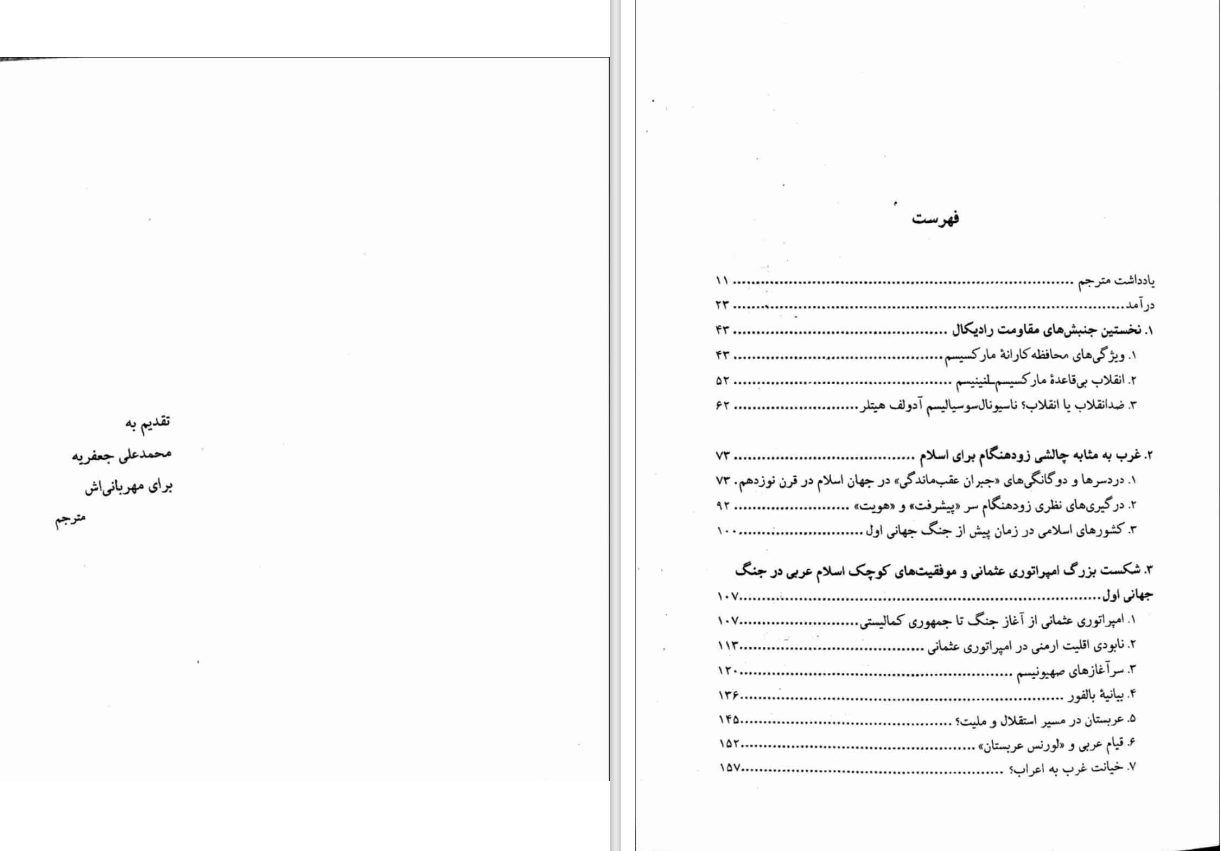 تقدیم به
محمدعلی جعفریه
برای مهربانی‌اش
مترجم
فهرست
یادداشت مترجم ........ ۱۱
درآمد ........ ۲۳
۱. نخستین جنبش‌های مقاومت رادیکال ........ ۴۳
۱. ویژگی‌های محافظه‌کارانهٔ مارکسیسم ........ ۴۳
۲. انقلاب بی‌قاعدهٔ مارکسیسم‌ـ‌لنینیسم ........ ۵۲
۳. ضدانقلاب یا انقلاب؟ ناسیونال‌سوسیالیسم آدولف هیتلر ........ ۶۲
۲. غرب به مثابه چالشی زودهنگام برای اسلام ........ ۷۳
۱. دردسرها و دوگانگی‌های «جبران عقب‌ماندگی» در جهان اسلام در قرن نوزدهم . ۷۳
۲. درگیری‌های نظری زودهنگام سر «پیشرفت» و «هویت» ........ ۹۲
۳. کشورهای اسلامی در زمان پیش از جنگ جهانی اول ........ ۱۰۰
۳. شکست بزرگ امپراتوری عثمانی و موفقیت‌های کوچک اسلام عربی در جنگ
جهانی اول ........ ۱۰۷
۱. امپراتوری عثمانی از آغاز جنگ تا جمهوری کمالیستی ........ ۱۰۷
۲. نابودی اقلیت ارمنی در امپراتوری عثمانی ........ ۱۱۳
۳. سرآغازهای صهیونیسم ........ ۱۲۰
۴. بیانیهٔ بالفور ........ ۱۳۶
۵. عربستان در مسیر استقلال و ملیت؟ ........ ۱۴۵
۶. قیام عربی و «لورنس عربستان» ........ ۱۵۲
۷. خیانت غرب به اعراب؟ ........ ۱۵۷